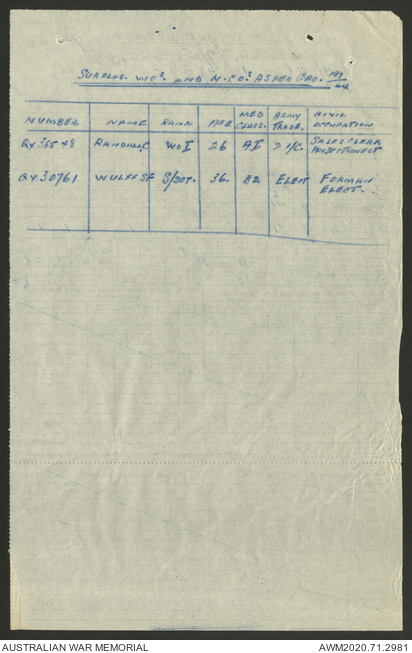 SURPLUS. WOs. AND N.COs AS PER GRO. 197/44
NUMBER NAME RANK AGE MED CLASS. ARMY TRADE. CIVIL OCCUPATION
QX36548 RANDALL C WO I 26 A1 2 I/C. SALES CLERK PROJECTIONEST
QX30761 WULFF SF S/SGT. 36. B2 ELECT FORMAN ELECT.
AUSTRALIAN WAR MEMORIAL AWM2020.71.2981